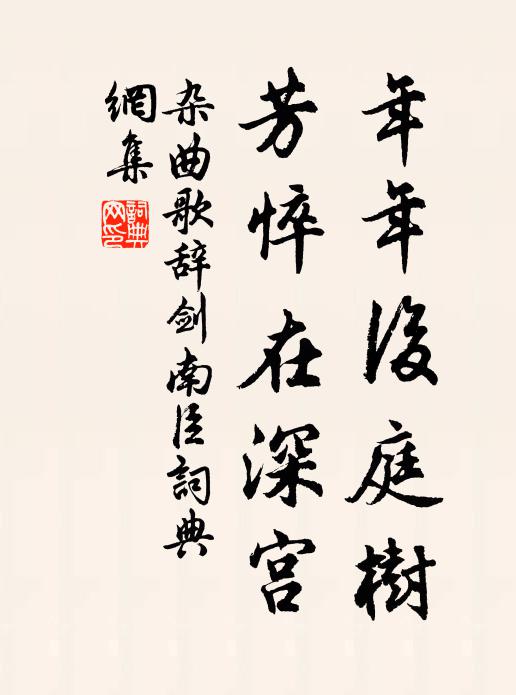 年年後庭樹
芳悴在深宫
杂曲歌辞剑南臣詞典
網集
詞典
网印